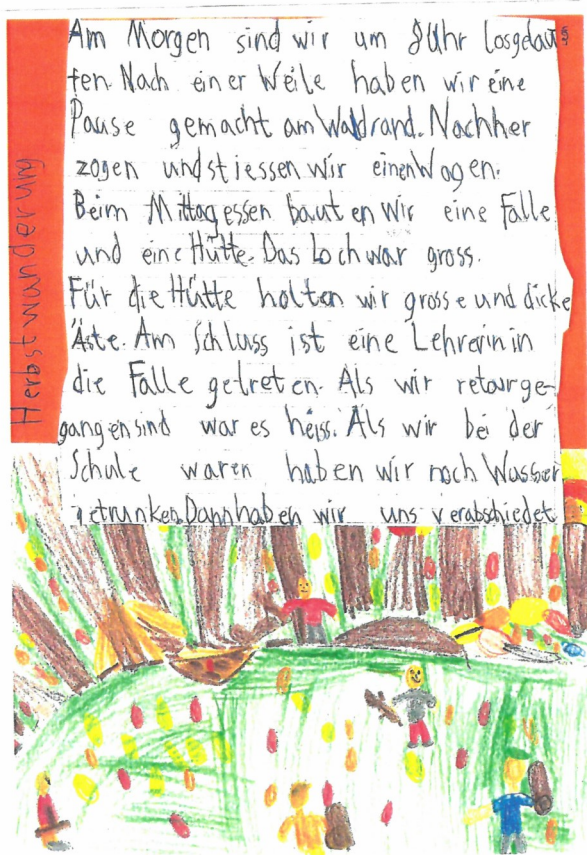 Herbstwanderung
Am Morgen sind wir um 8 Uhr losgelau-
fen. Nach einer Weile haben wir eine
Pause gemacht am Waldrand. Nachher
zogen und stiessen wir einen Wagen.
Beim Mittagessen bauten wir eine Falle
und eine Hütte. Das Loch war gross.
Für die Hütte holten wir grosse und dicke
Äste. Am Schluss ist eine Lehrerin in
die Falle getreten. Als wir retourge-
gangen sind war es heiss. Als wir bei der
Schule waren haben wir noch Wasser
getrunken. Dann haben wir uns verabschiedet